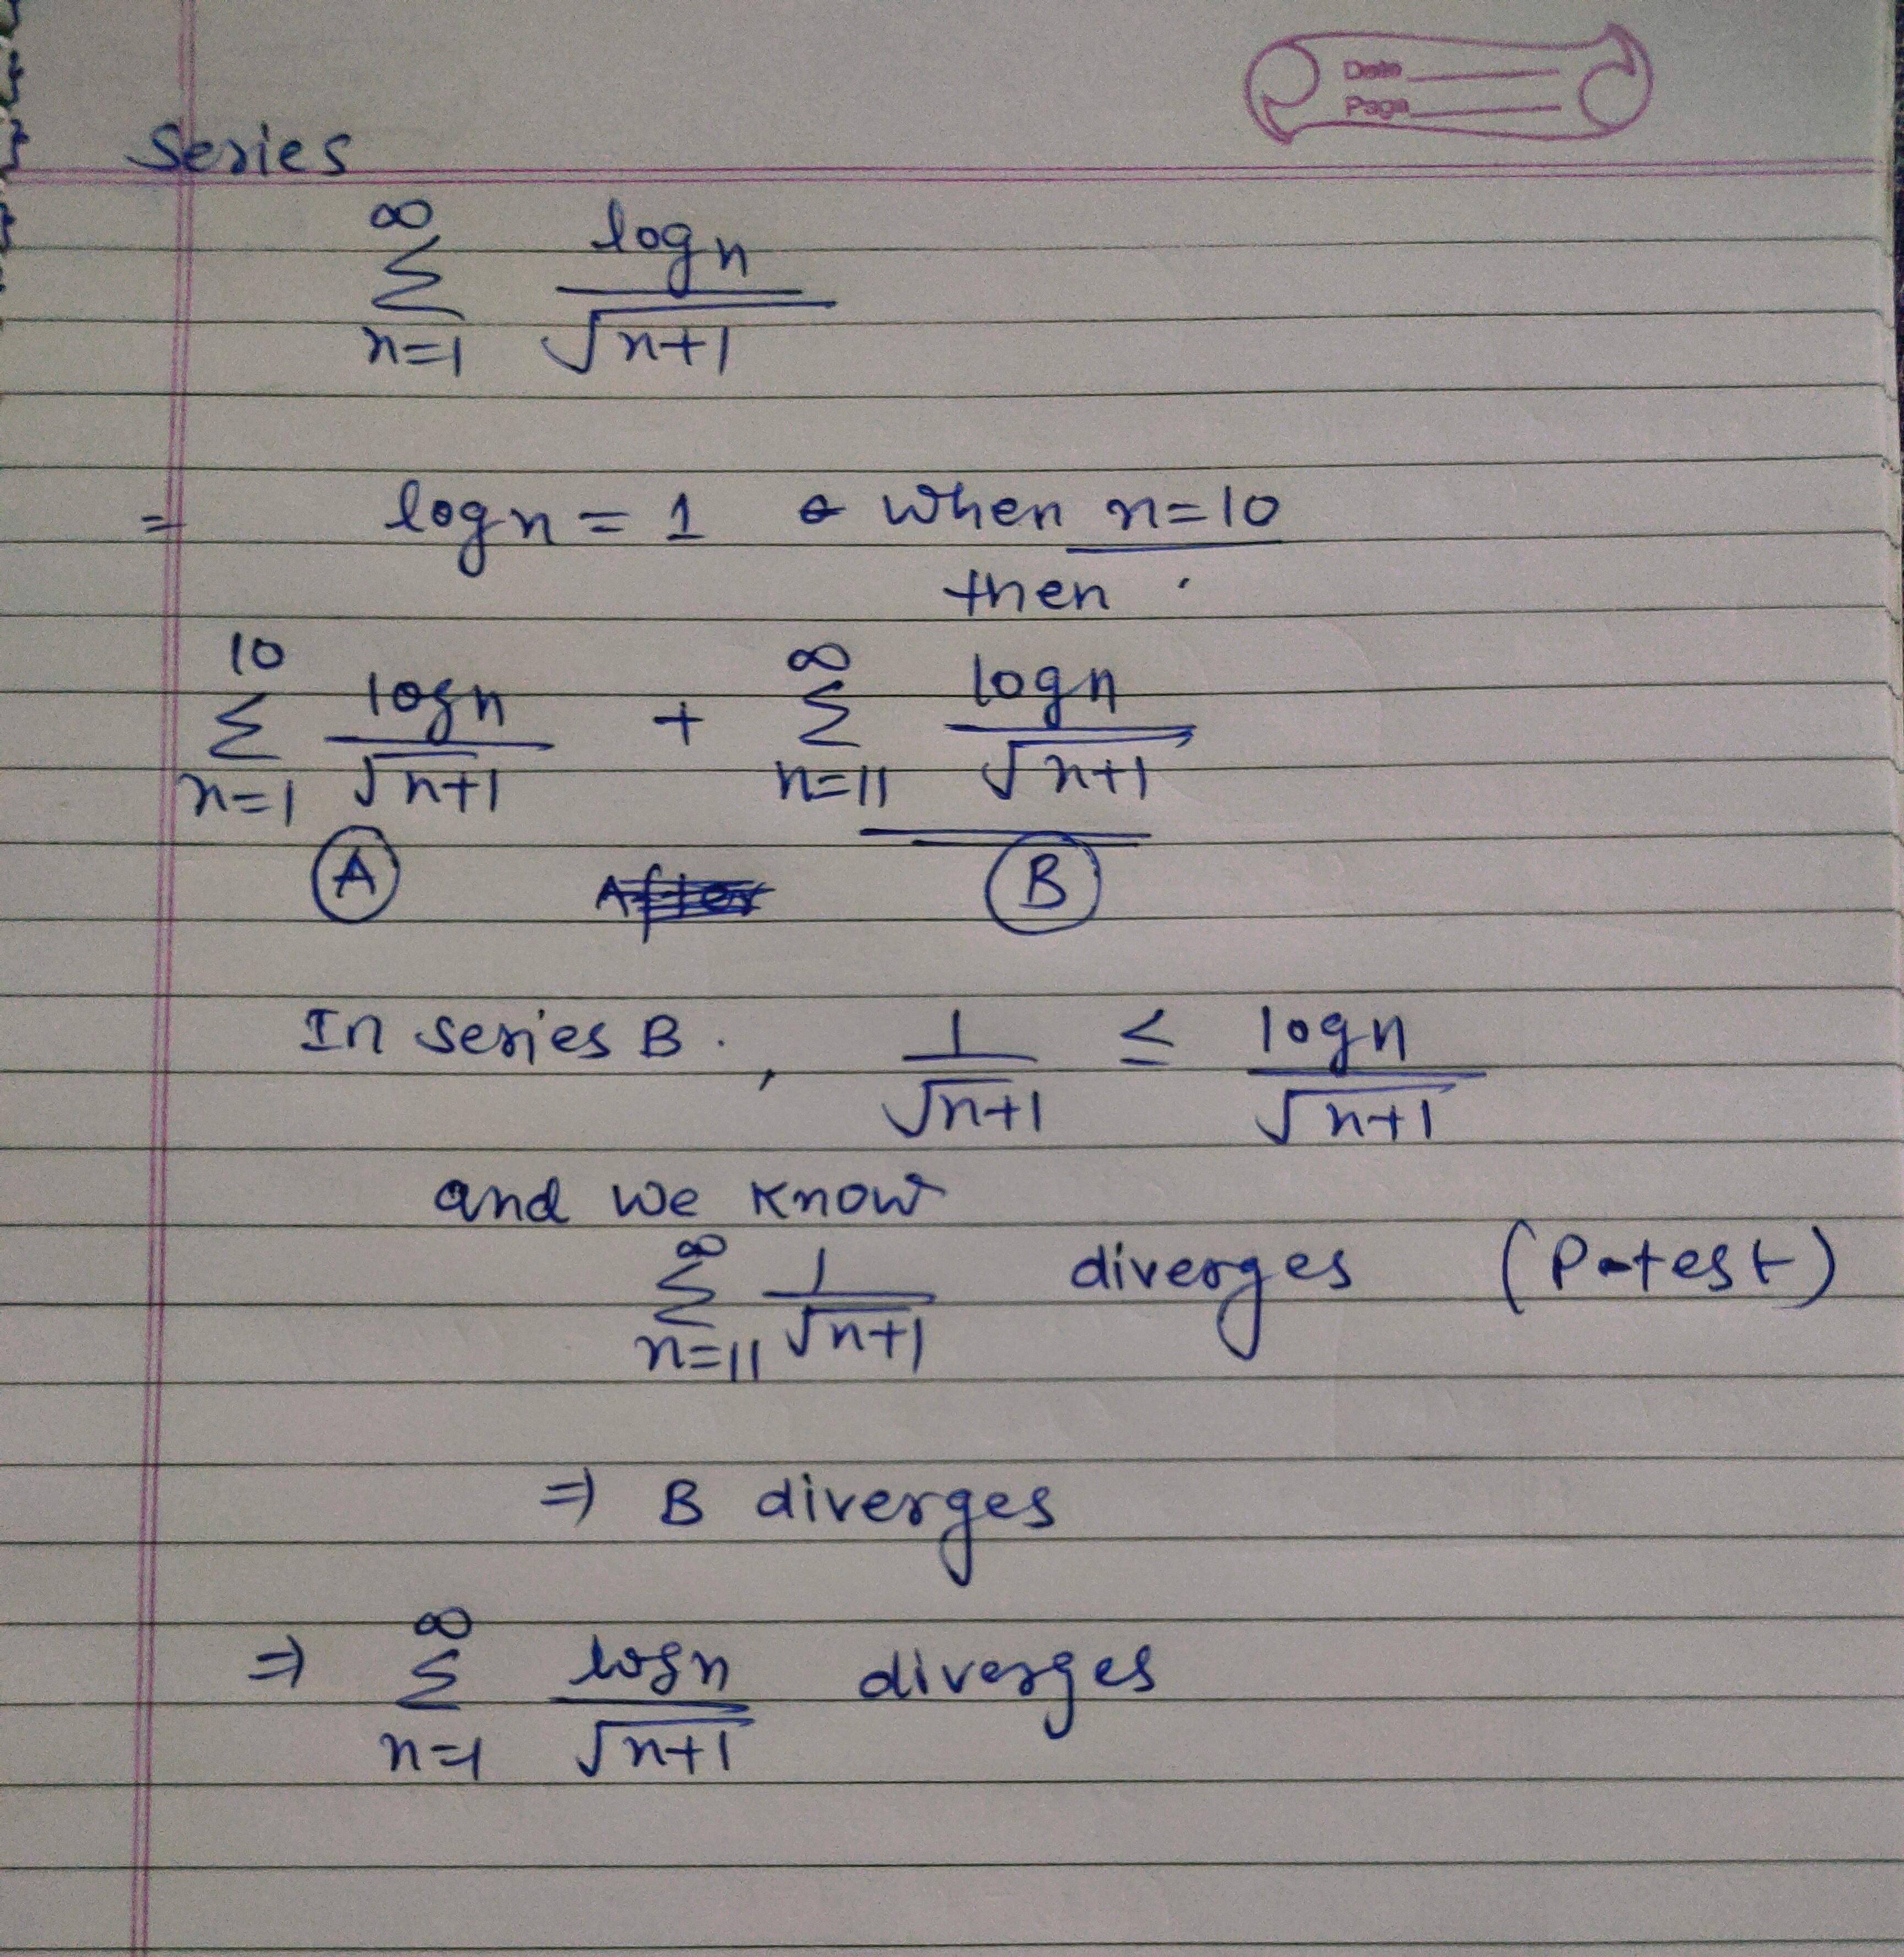 Date
Page
Series
∞ Σ n=1 log n / √n+1
= log n = 1 when n=10
then
10 Σ n=1 log n / √n+1 + ∞ Σ n=11 log n / √n+1
A After B
In series B. , 1 / √n+1 ≤ log n / √n+1
and we know
∞ Σ n=11 1 / √n+1 diverges (P-test)
⇒ B diverges
⇒ ∞ Σ n=1 log n / √n+1 diverges